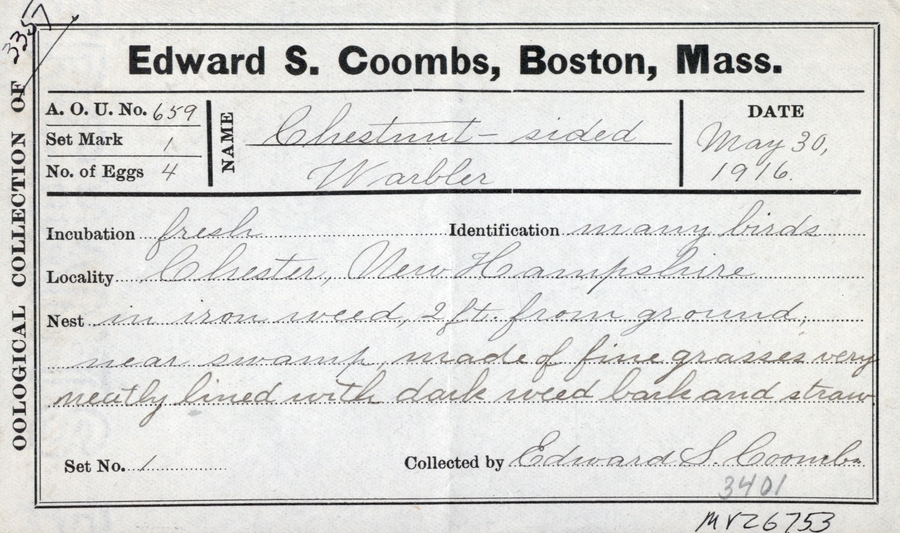 3357
OOLOGICAL COLLECTION OF
Edward S. Coombs, Boston, Mass.
A. O. U. No. 659
Set Mark 1
No. of Eggs 4
NAME
Chestnut-sided
Warbler
DATE
May 30,
1916.
Incubation fresh Identification many birds
Locality Chester, New Hampshire
Nest in iron weed, 2 ft. from ground,
near swamp, made of fine grasses very
neatly lined with dark weed bark and straw
Set No. 1 Collected by Edward S. Coombs
3401
MV26753